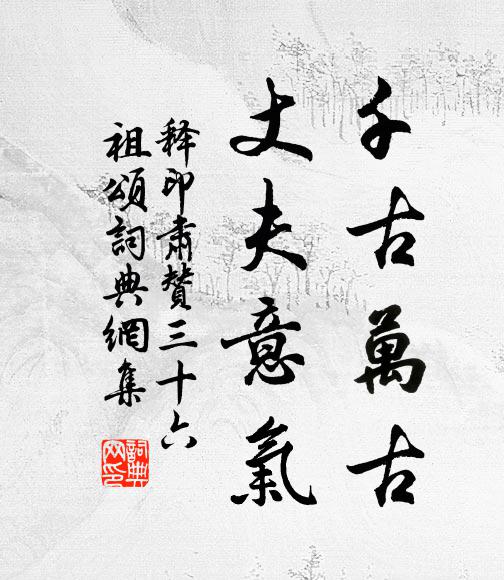 千古萬古
丈夫意氣
释印肃赞三十六
祖頌詞典網集
詞典
网印